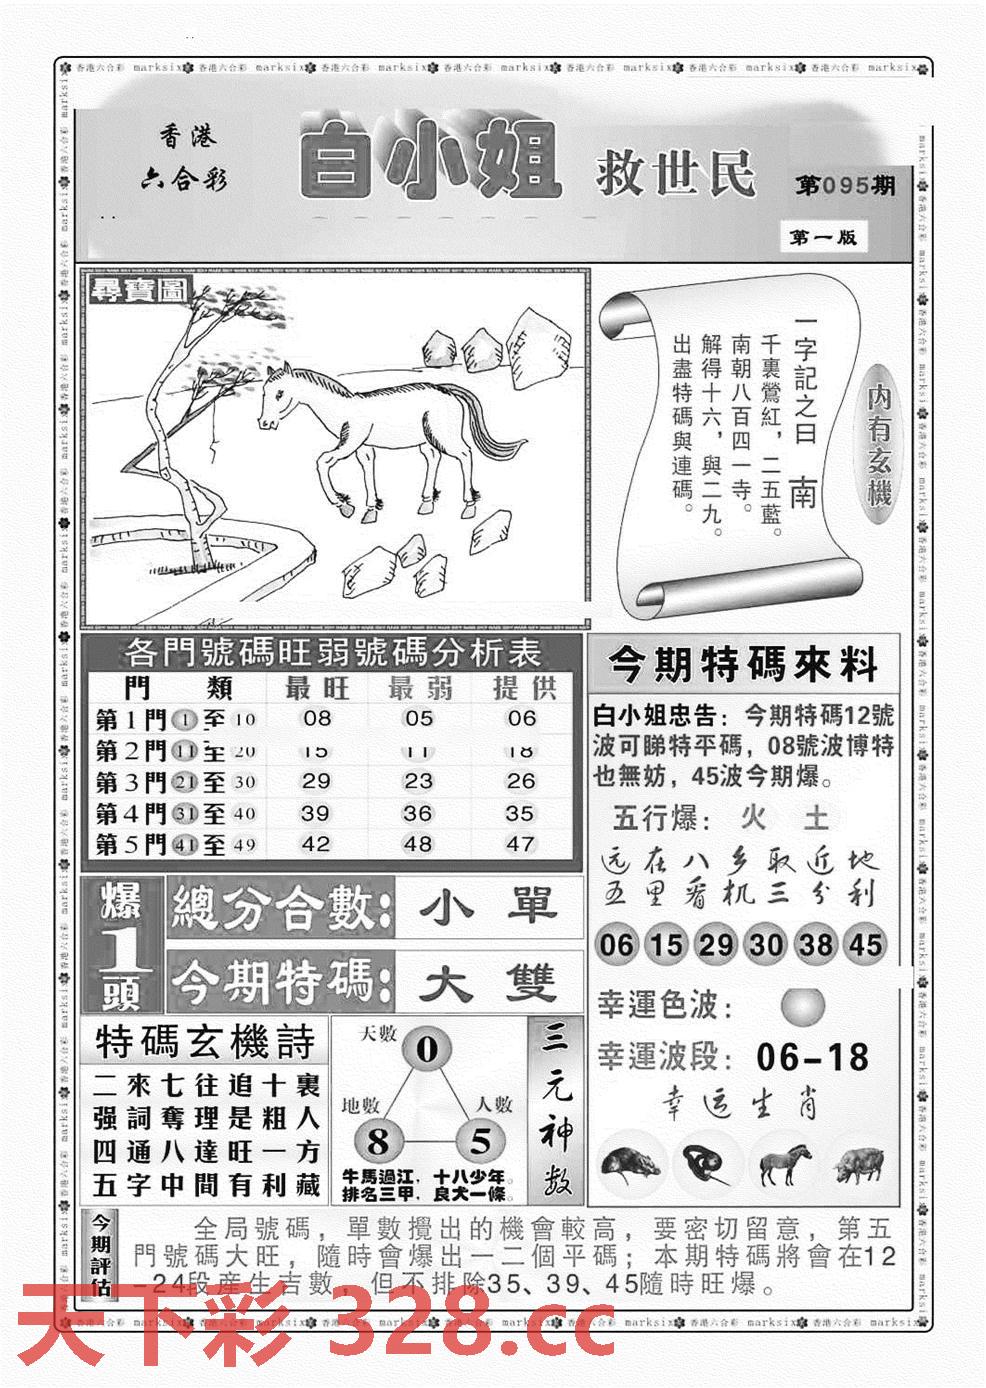 香港六合彩 marksix 香港六合彩 marksix 香港六合彩 marksix 香港六合彩 marksix 香港六合彩 marksix 香港六合彩 marksix 香港六合彩 marksix
香港
六合彩
白小姐 救世民
第095期
第一版
尋寶圖
一字記之曰 南
千裏鶯紅，二五藍。
南朝八百四一寺。
解得十六，與二九。
出盡特碼與連碼。
內有玄機
各門號碼旺弱號碼分析表
門 類 最旺 最弱 提供
第1門 1 至 10 08 05 06
第2門 11 至 20 15 11 18
第3門 21 至 30 29 23 26
第4門 31 至 40 39 36 35
第5門 41 至 49 42 48 47
今期特碼來料
白小姐忠告：今期特碼12號
波可睇特平碼，08號波博特
也無妨，45波今期爆。
五行爆： 火 土
远在八乡取近地
五里看机三分利
06 15 29 30 38 45
幸運色波：
幸運波段：06-18
幸运生肖
爆
1
頭
總分合數：小 單
今期特碼：大 雙
特碼玄機詩
二來七往追十裏
强詞奪理是粗人
四通八達旺一方
五字中間有利藏
天數 0
地數 8
人數 5
牛馬過江，十八少年。
排名三甲，良犬一條。
三元神数
今期評估
全局號碼，單數攪出的機會較高，要密切留意，第五
門號碼大旺，隨時會爆出一二個平碼；本期特碼將會在12
-24段産生吉數，但不排除35、39、45隨時旺爆。
天下彩 328.cc
香港六合彩 marksix 香港六合彩 marksix 香港六合彩 marksix 香港六合彩 marksix 香港六合彩 marksix 香港六合彩 marksix 香港六合彩 marksix